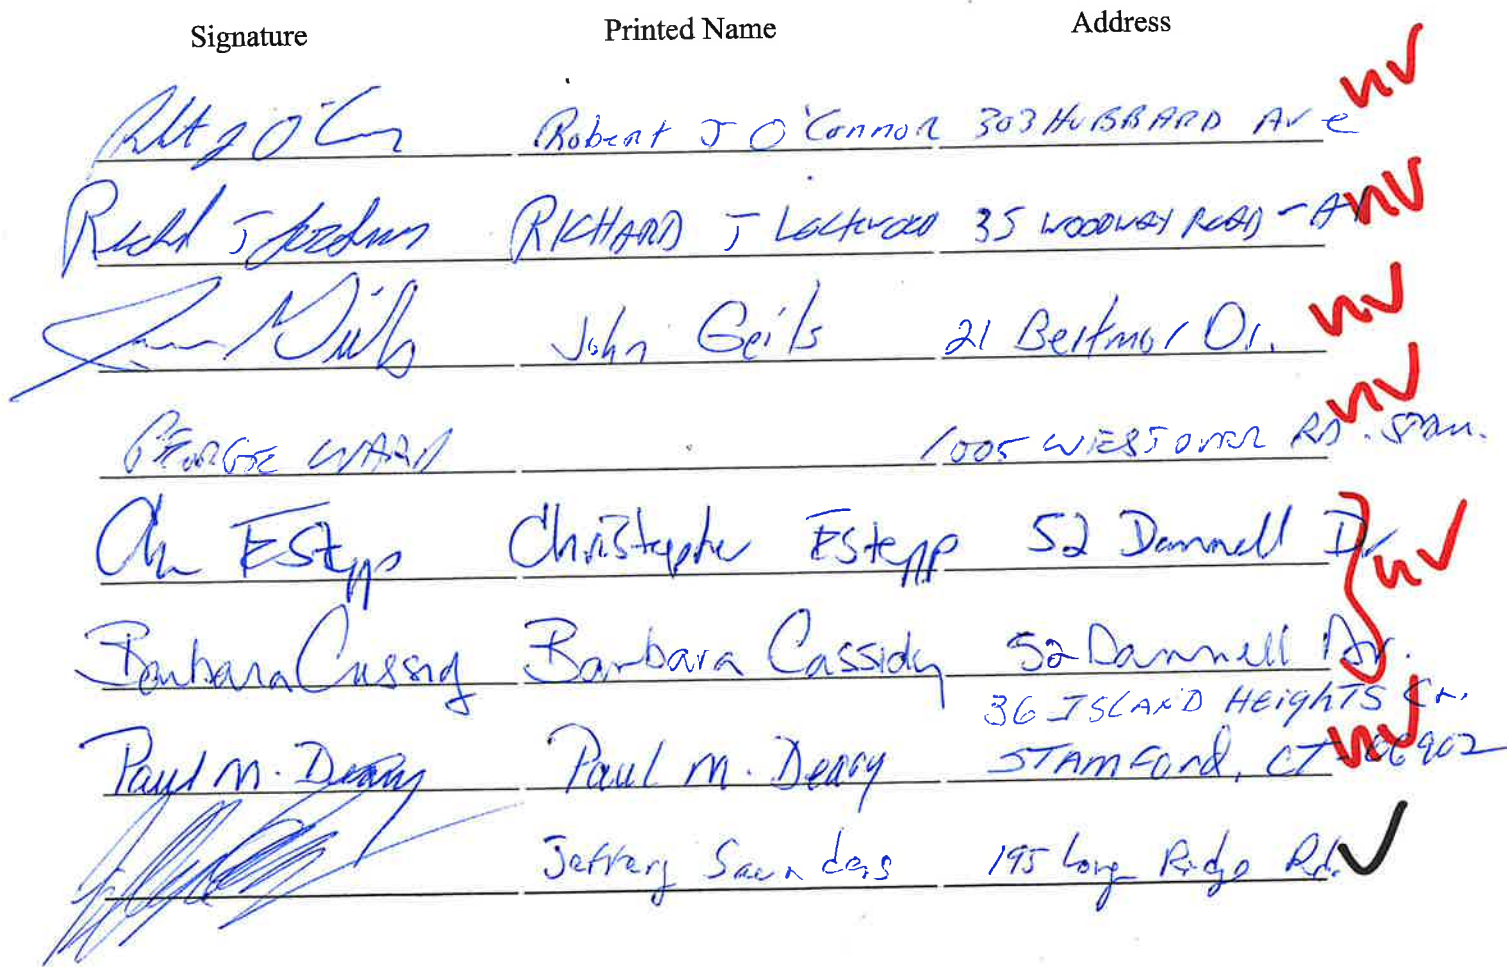 Signature Printed Name Address
nv
Robert J O'Connor 303 HUBBARD Ave
RICHARD J Lockwood 35 WOODWAY ROAD - A nv
John Geils 21 Beltmor Dr. nv
GEORGE WARD 1005 WESTOVER RD. STAM. nv
Chr Estepp Christopher Estepp 52 Dannell Dr nv
Barbara Cassidy Barbara Cassidy 52 Dannell Dr.
36 ISLAND HEIGHTS Cr.
Paul M. Deary Paul M. Deary STAMFORD, CT 06902 nv
Jeffery Saunders 195 Long Ridge Rd. ✓